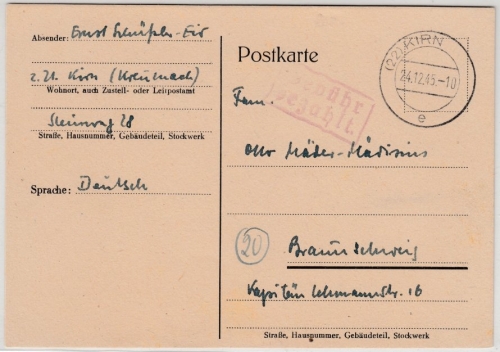 Absender: Ernst
z. Zt. Kirn (Kreuznach)
Wohnort, auch Zustell- oder Leitpostamt
Steinweg 28
Straße, Hausnummer, Gebäudeteil, Stockwerk
Sprache: Deutsch
Postkarte
(22) KIRN
24.12.45.-10
e
Gebühr
bezahlt.
Fam.
Otto
20
Braunschweig
Kapitän Lehmannstr. 16
Straße, Hausnummer, Gebäudeteil, Stockwerk